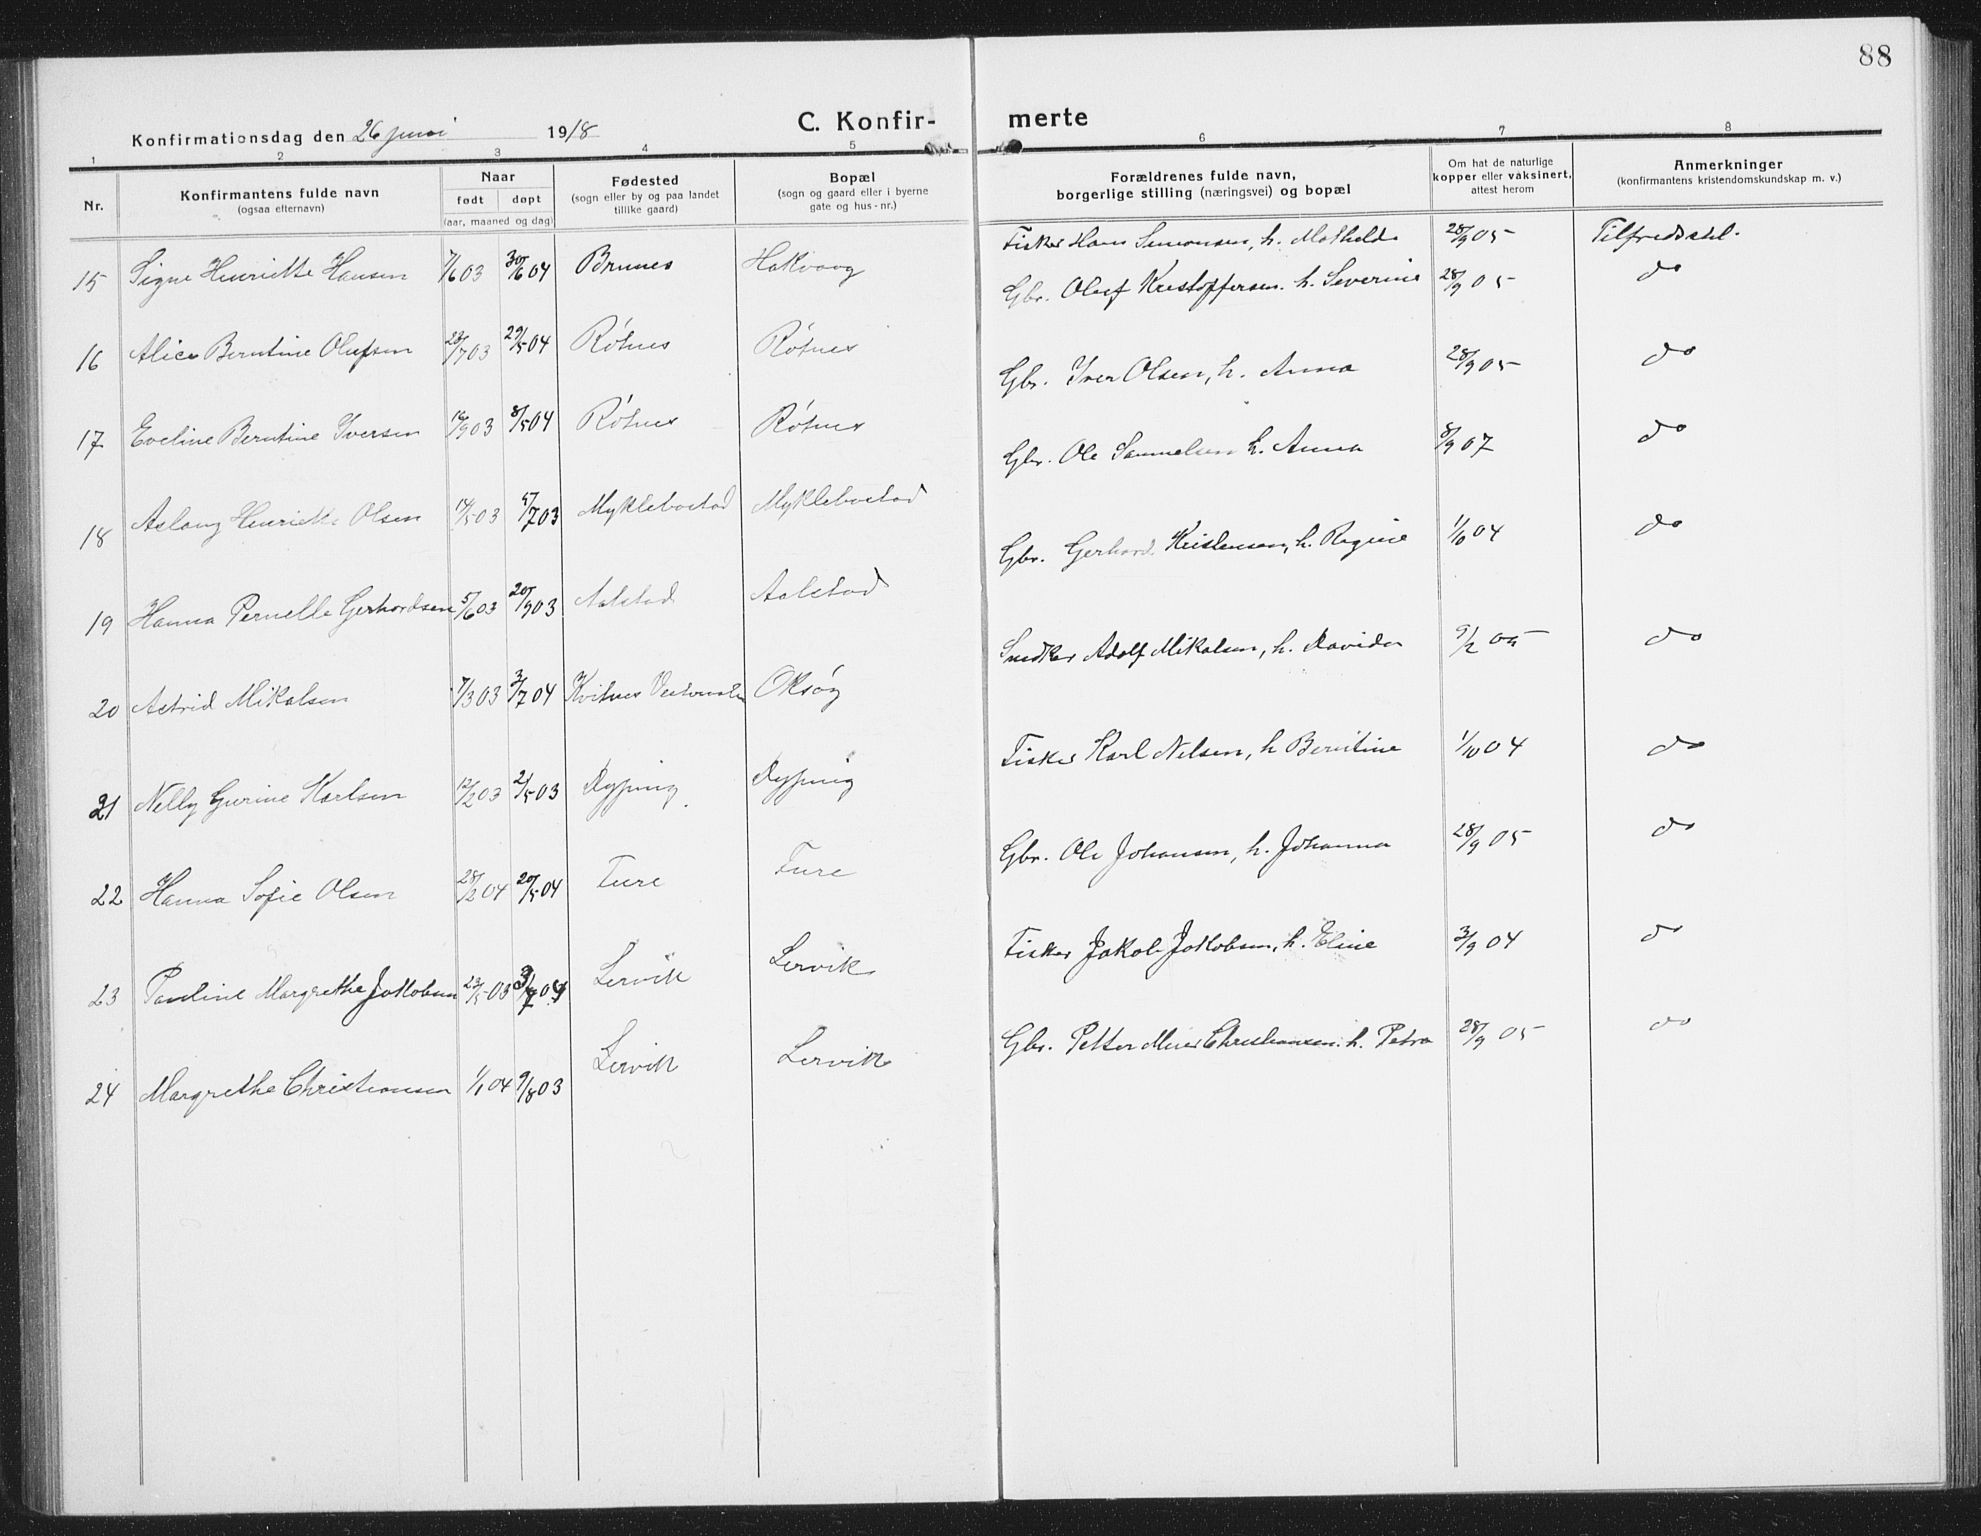 88
Konfirmationsdag den 26 juni 1918
C. Konfir-merte
1 2 3 4 5 6 7 8
Nr. | Konfirmantens fulde navn (ogsaa efternavn) | Naar født døpt (aar, maaned og dag) | Fødested (sogn eller by og paa landet tillike gaard) | Bopæl (sogn og gaard eller i byerne gate og hus-nr.) | Forældrenes fulde navn, borgerlige stilling (næringsvei) og bopæl | Om hat de naturlige kopper eller vaksinert, attest herom | Anmerkninger (konfirmantens kristendomskundskap m. v.)
15 Signe Henriette Hansen 7/6 03 30/6 04 Brunes Hakvaag Fisker Hans Simonsen, h. Mathilde 28/9 05 Tilfredsstil.
16 Alice Berntine Olufsen 28/7 03 29/5 04 Røtnes Røtnes Gbr. Oluf Kristoffersen. h. Severine 28/9 05 do
17 Eveline Berntine Iversen 16/9 03 8/5 04 Røtnes Røtnes Gbr. Iver Olsen, h. Anna 28/9 05 do
18 Aslaug Henriette Olsen 14/5 03 5/7 03 Myklebostad Myklebostad Gbr. Ole Samuelsen h. Anna 8/9 07 do
19 Hanna Pernelle Gerhardsen 5/6 03 20/9 03 Aalstad Aalstad Gbr. Gerhard Kristensen, h. Regine 1/10 04 do
20 Astrid Mikalsen 7/3 03 3/7 04 Kvitnes Oksøy Snedker Adolf Mikalsen, h. Davida 9/2 05 do
21 Nelly Gurine Karlsen 12/2 03 21/5 03 Rypnig Rypnig Fisker Karl Nilsen, h Berntine 1/10 04 do
22 Hanna Sofie Olsen 28/2 04 20/5 04 Fure Fure Gbr. Ole Johansen, h. Johanna 28/9 05 do
23 Pauline Margrethe Jakobsen 23/5 03 Lervik Lervik Fisker Jakob Jakobsen, h. Eline 3/9 04 do
24 Margrethe Christiansen 1/1 04 9/8 03 Lervik Lervik Gbr. Petter Meier Christiansen. h. Petra 28/9 05 do